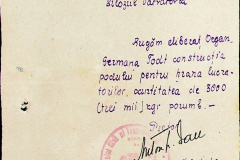 Silozul Valvatova
Rugăm eliberați Organ.
Germana Todt constructia
podului pentru hrana lucră-
torilor, cantitatea de 3000
(trei mii) kgr porumb. —
Pretor